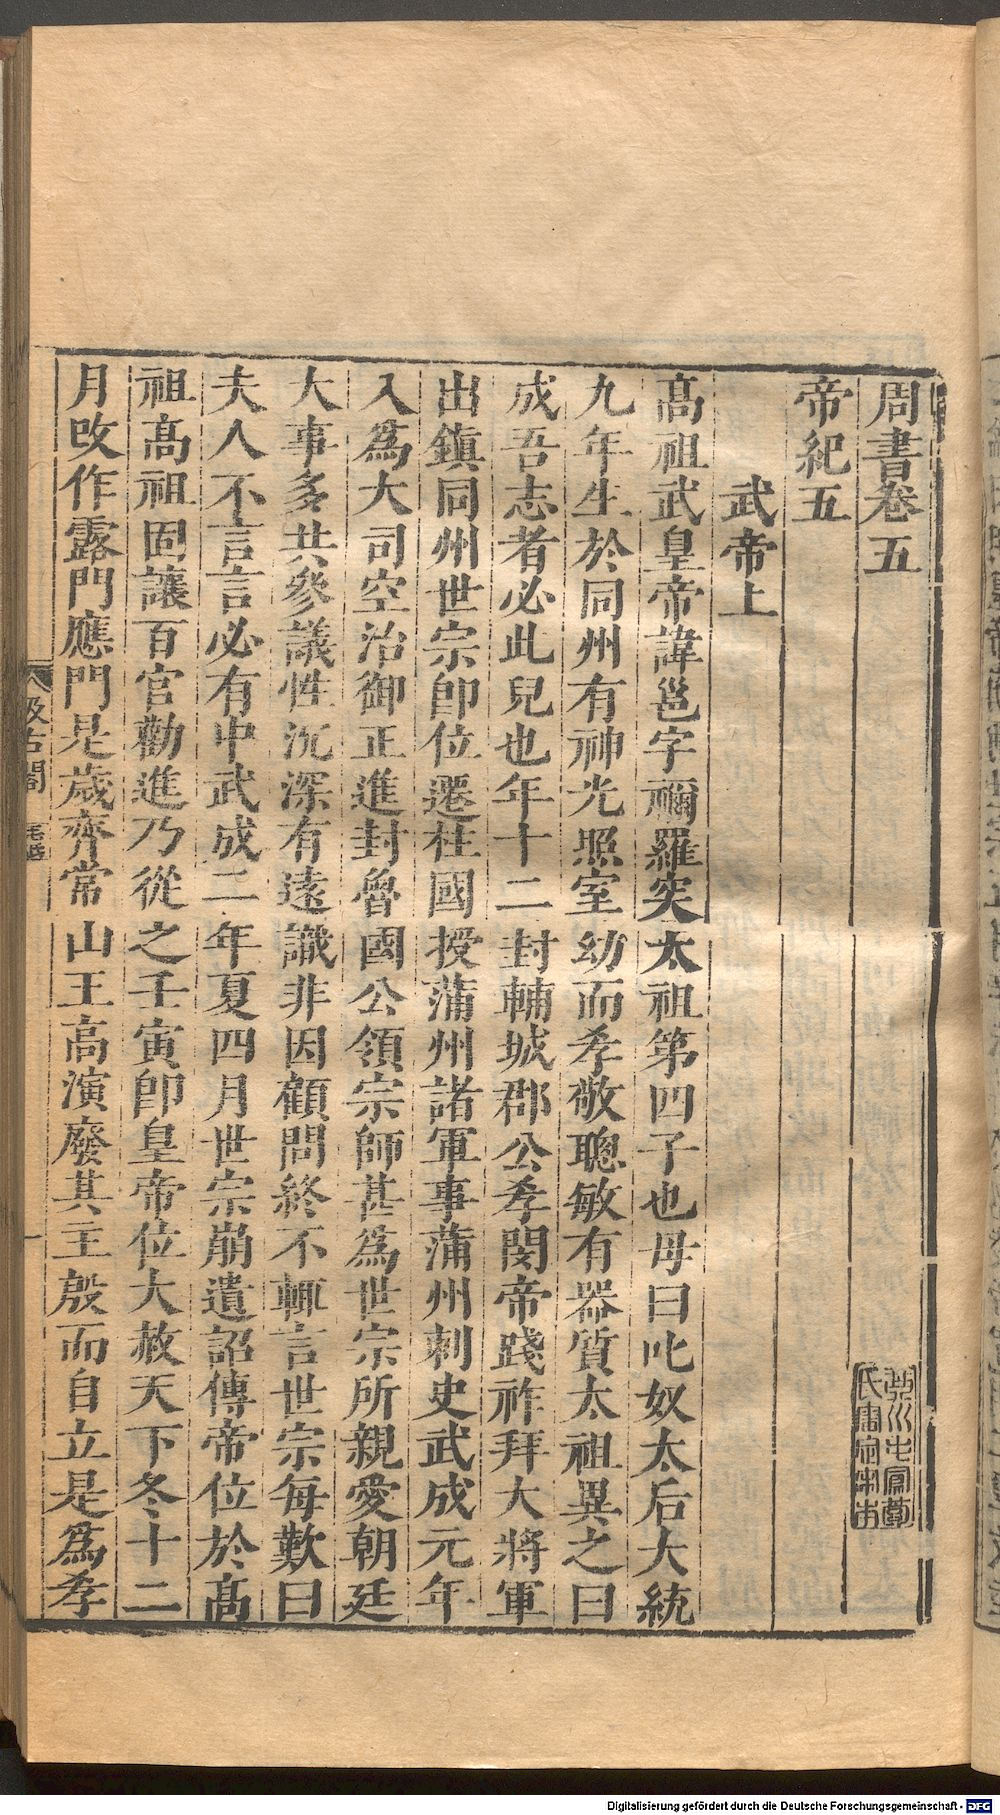 周書卷五
帝紀五
武帝上
高祖武皇帝諱邕字禰羅突太祖第四子也母曰叱奴太后大統
九年生於同州有神光照室幼而孝敬聰敏有器質太祖異之曰
成吾志者必此兒也年十二封輔城郡公孝閔帝踐祚拜大將軍
出鎮同州世宗卽位遷柱國授蒲州諸軍事蒲州刺史武成元年
入爲大司空治御正進封魯國公領宗師甚爲世宗所親愛朝廷
大事多共參議性沉深有遠識非因顧問終不輒言世宗每歎曰
夫人不言言必有中武成二年夏四月世宗崩遺詔傳帝位於高
祖高祖固讓百官勸進乃從之壬寅卽皇帝位大赦天下冬十二
月改作露門應門是歲齊常山王高演廢其主殷而自立是爲孝
汲古閣
毛氏
一
Digitalisierung gefördert durch die Deutsche Forschungsgemeinschaft - DFG